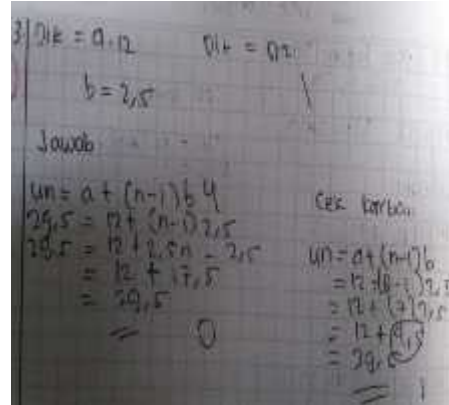 3) Dik = a. 12
b = 2,5
Jawab
Un = a + (n-1) b
29,5 = 12 + (n-1) 2,5
29,5 = 12 + 2,5n - 2,5
= 12 + 17,5
= 29,5
Cek
Un = a + (n-1) b
= 12 + (8-1) 2,5
= 12 + (7) 2,5
= 12 +
= 29,5